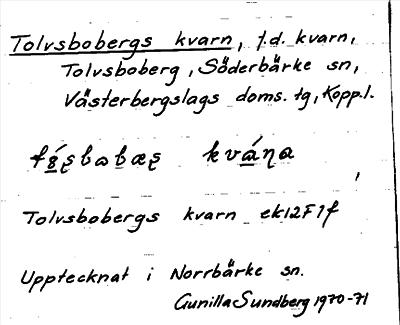 Tolvsbobergs kvarn, f.d. kvarn,
Tolvsboberg, Söderbärke sn,
Västerbergslags doms. tg, Kopp.l.
kvána
Tolvsbobergs kvarn ek12F1f
Upptecknat i Norrbärke sn.
Gunilla Sundberg 1970-71